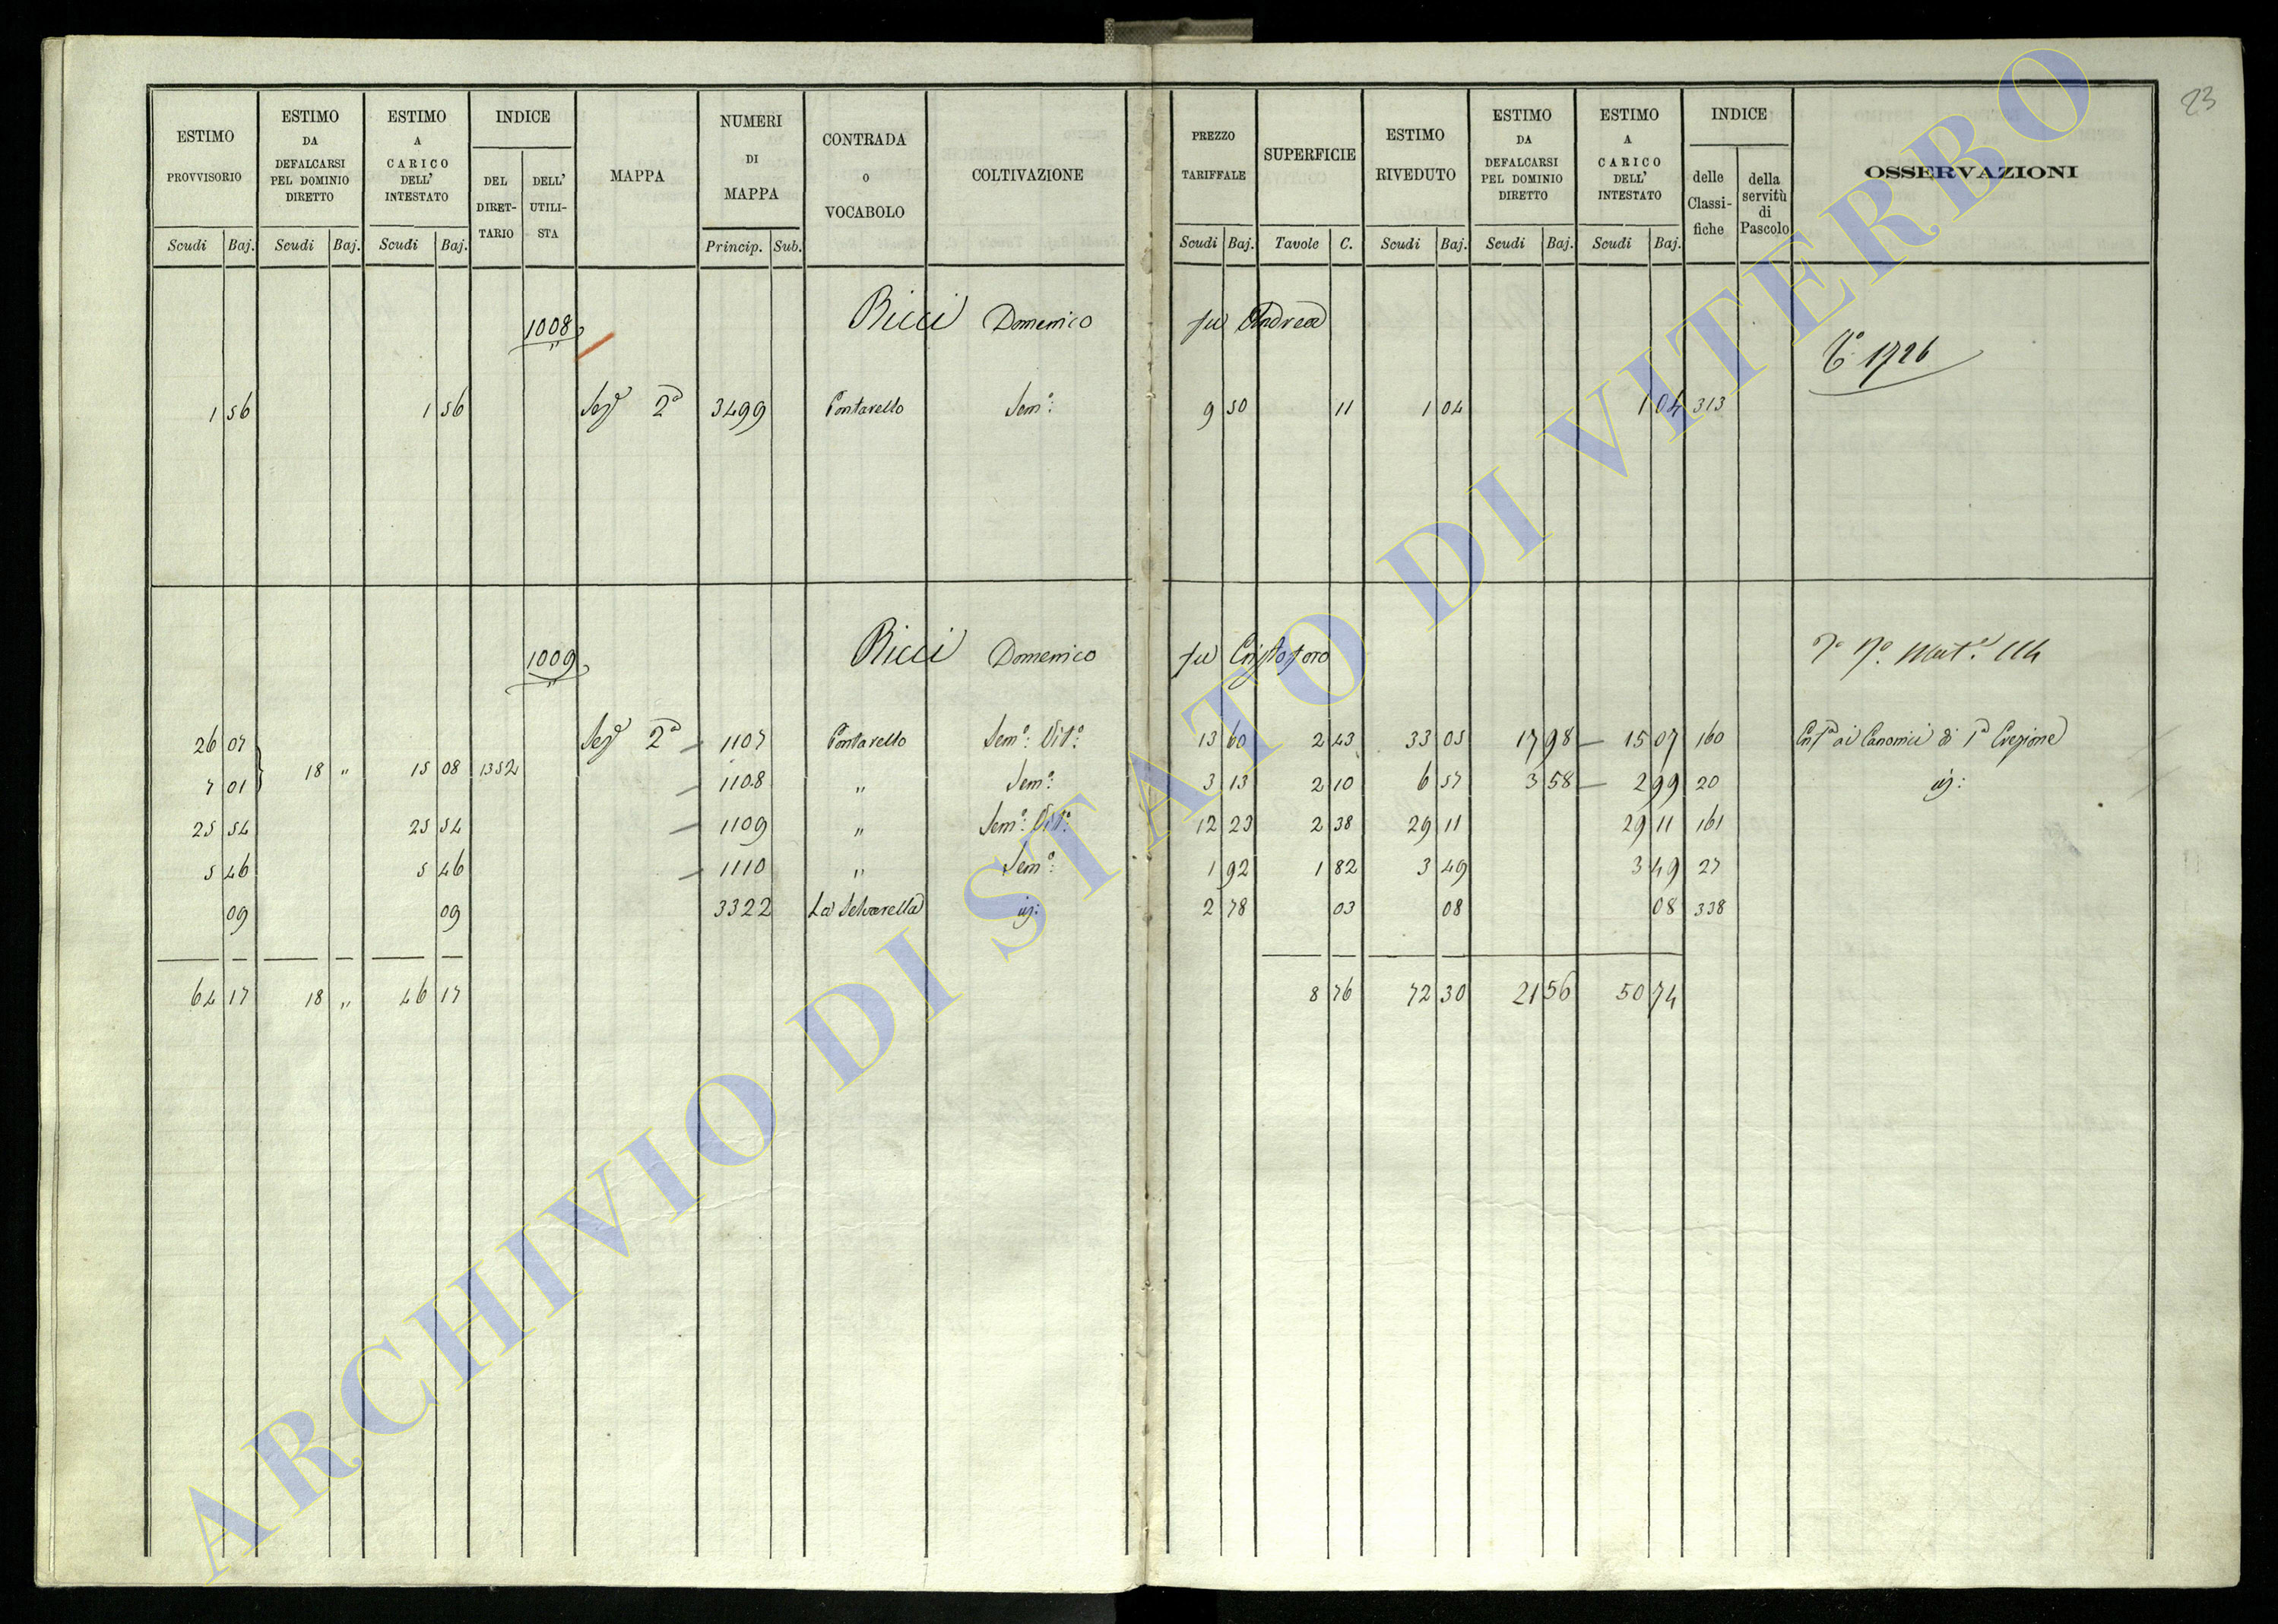 23
ESTIMO PROVVISORIO | ESTIMO DA DEFALCARSI PEL DOMINIO DIRETTO | ESTIMO A CARICO DELL' INTESTATO | INDICE DEL DIRET-TARIO | DELL' UTILI-STA | MAPPA | NUMERI DI MAPPA | CONTRADA O VOCABOLO | COLTIVAZIONE | PREZZO TARIFFALE | SUPERFICIE | ESTIMO RIVEDUTO | ESTIMO DA DEFALCARSI PEL DOMINIO DIRETTO | ESTIMO A CARICO DELL' INTESTATO | INDICE delle Classi-fiche | della servitù di Pascolo | OSSERVAZIONI
Scudi Baj. | Scudi Baj. | Scudi Baj. | Princip. Sub. | Scudi Baj. | Tavole C. | Scudi Baj. | Scudi Baj. | Scudi Baj.
1008 Ricci Domenico fu Andrea
1726
1 56 | 1 56 | Sez 2a | 3499 | Pontarello | Sem.o | 9 50 | 11 | 1 04 | 1 04 | 313
1009 Ricci Domenico fu Cristoforo
114
26 07 | Sez 2a | 1107 | Pontarello | Sem.o Vit.o | 13 60 | 2 43 | 33 05 | 17 98 | 15 07 | 160 | ai Canonici di Erezione
18 " | 15 08 | 1352
7 01 | 1108 | " | Sem.o | 3 13 | 2 10 | 6 57 | 3 58 | 2 99 | 20
25 54 | 25 54 | 1109 | " | Sem.o Vit.o | 12 23 | 2 38 | 29 11 | 29 11 | 161
5 46 | 5 46 | 1110 | " | Sem.o | 1 92 | 1 82 | 3 49 | 3 49 | 27
09 | 09 | 3322 | La Selvarella | 2 78 | 03 | 08 | 08 | 338
64 17 | 18 " | 46 17 | 8 76 | 72 30 | 21 56 | 50 74
ARCHIVIO DI STATO DI VITERBO